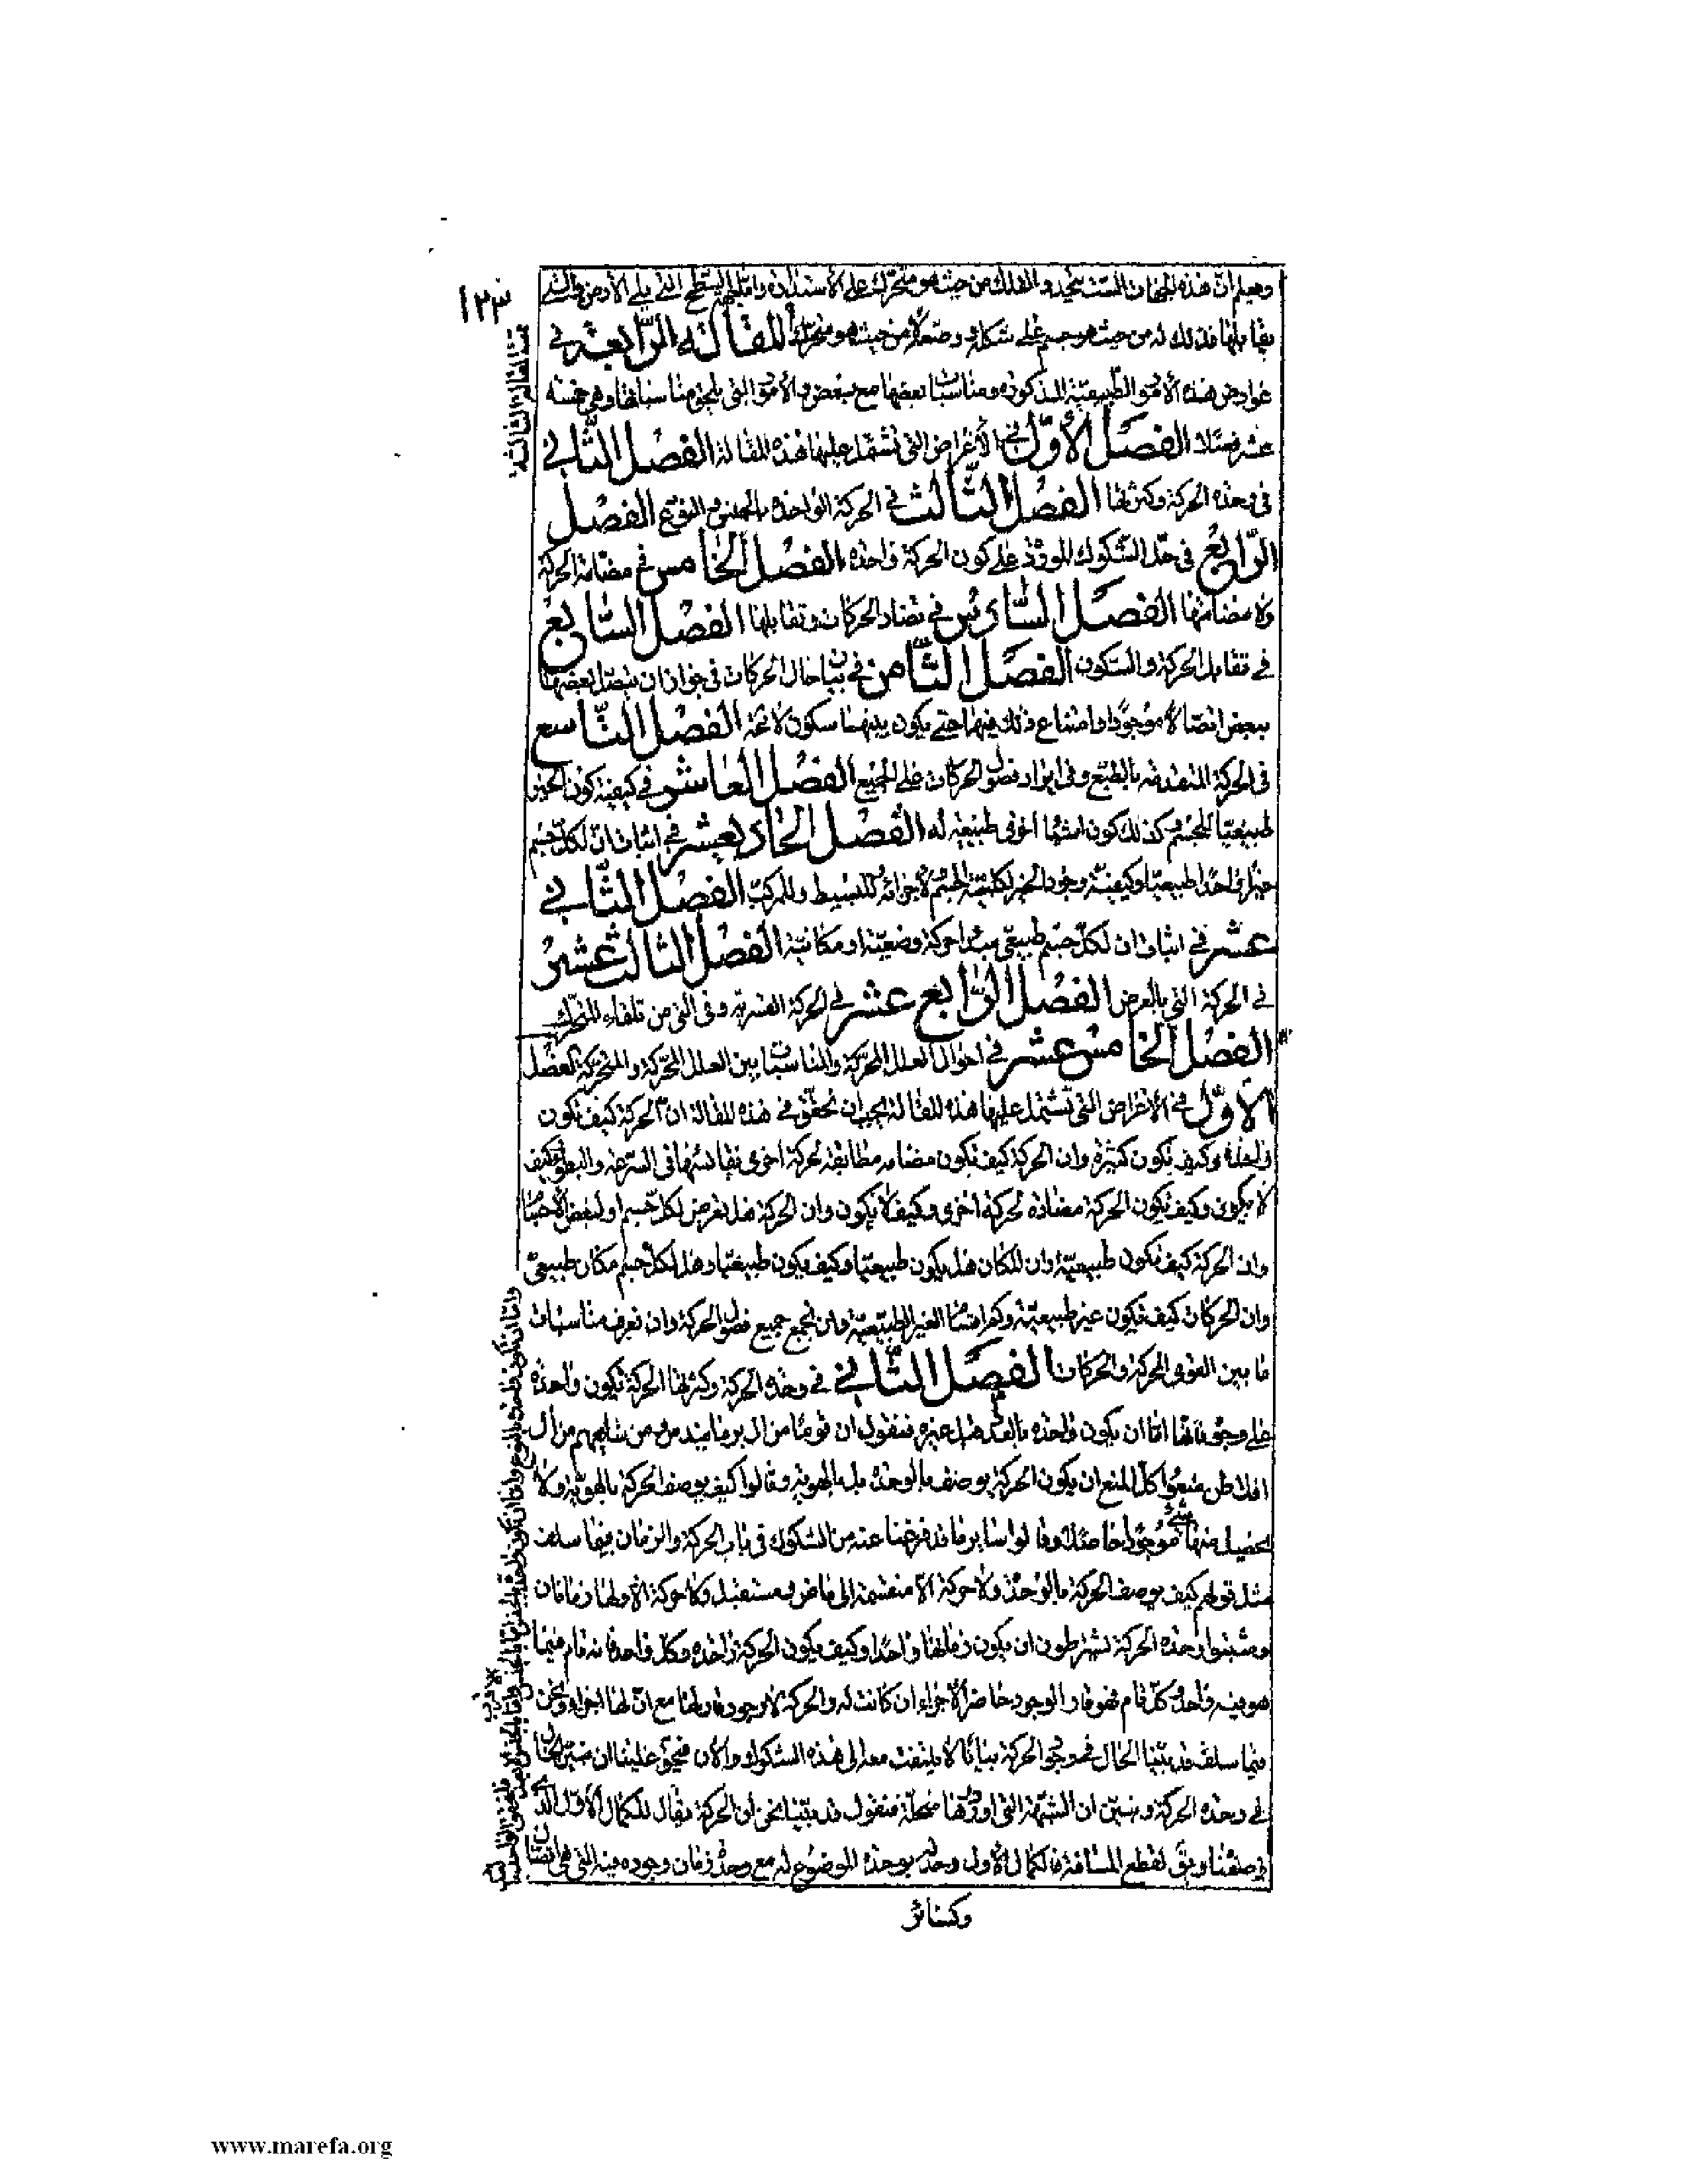 ١٢٣
تمت المقالة الثالثة
ويعلم ان هذه الجهات الست تتحدد والفلك من حيث هو متحرك على الاستدارة واما السطح الذي يلي الارض والذي
يقابلها فذلك له من حيث هو جسم على شكله وضعه لا من حيث هو متحرك المقالة الرابعة في
عوارض هذه الأمور الطبيعية المذكورة ومناسبات بعضها مع بعض والأمور التي يلحق مناسباتها وهي خمسة
عشر فصلا الفصل الأول في الأغراض التي تشتمل عليها هذه المقالة الفصل الثاني
في وحدة الحركة وكثرتها الفصل الثالث في الحركة الواحدة بالجنس والنوع الفصل
الرابع في حل الشكوك الموردة على كون الحركة واحدة الفصل الخامس في مضامة الحركة
ولا مضامتها الفصل السادس في تضاد الحركات وتقابلها الفصل السابع
في تقابل الحركة والسكون الفصل الثامن في بيان حال الحركات في جواز ان يتصل بعضها
ببعض اتصالا موجودا وامتناع ذلك فيها حتى يكون بينهما سكون لا محة الفصل التاسع
في الحركة المتقدمة بالطبع وفي ايراد فصول الحركات على الجميع الفصل العاشر في كيفية كون الحيز
طبيعيا للجسم وكذلك كون اشياء اخرى طبيعية له الفصل الحادي عشر في اثبات ان لكل جسم
حيزا واحدا طبيعيا وكيفية وجود الحيز لكلية الجسم ولأجزائه للبسيط وللمركب الفصل الثاني
عشر في اثبات ان لكل جسم طبيعي مبدأ حركة وضعية او مكانية الفصل الثالث عشر
في الحركة التي بالعرض الفصل الرابع عشر في الحركة القسرية وفي التي من تلقاء المتحرك
الفصل الخامس عشر في احوال العلل المحركة والمناسبات بين العلل المحركة والمتحركة الفصل
الأول في الأغراض التي تشتمل عليها هذه المقالة يجب ان نحقق في هذه المقالة ان الحركة كيف تكون
واحدة وكيف تكون كثيرة وان الحركة كيف تكون مضامة مطابقة لحركة اخرى نقايسها في السرعة والبطؤ وكيف
لا يكون وكيف تكون الحركة مضادة لحركة اخرى وكيف لا يكون وان الحركة هل تعرض لكل جسم او لبعض الأجسام
وان الحركة كيف تكون طبيعية وان المكان هل يكون طبيعيا وكيف يكون طبيعيا وهل لكل جسم مكان طبيعي
وان الحركات كيف تكون غير طبيعية وكم اقسام الغير الطبيعية وان نجمع جميع فصول الحركة وان نعرف مناسبات
ما بين القوى المحركة والحركات الفصل الثاني في وحدة الحركة وكثرتها الحركة تكون واحدة
على وجوه فانها اما ان يكون واحدة بالعدد فنقول ان قوما من ال برمانيدس ومن شايعهم من ال
افلاطن منعوا كل المنع ان يكون الحركة يوصف بالوحدة بل بالهوية وقالوا كيف يوصف الحركة بالهوية ولا
يحصل منها شيء موجودا حاصلا وقالوا ساير ما قد فرغنا عنه من الشكوك في باب الحركة والزمان فيما سلف
مثل قولهم كيف يوصف الحركة بالوحدة ولا حركة الا منقسمة الى ماض ومستقبل ولا حركة الا ولها زمانان
ومثبتوا وحدة الحركة يشترطون ان يكون زمانها واحدا وكيف يكون الحركة واحدة وكل واحد فانه تام فيما
هو فيه واحد وكل تام فهو قار الوجود حاضر الأجزاء ان كانت له والحركة لا وجود قار لها مع ان لها اجزاء ونحن
فيما سلف قد بينا الحال في وجود الحركة بيانا لا يلتفت معه الى هذه الشكوك والآن فيحق علينا ان نبين الحال
في وحدة الحركة ونبين ان الشبهة التي اوردوها منحلة فنقول قد بينا نحن ان الحركة يقال للكمال الأول الذي
وصفنا ويق لقطع المسافة فالكمال الأول وحدته بوحدة الموضوع له مع وحدة زمان وجوده فيه التي هي اتصال
وكسائر
www.marefa.org